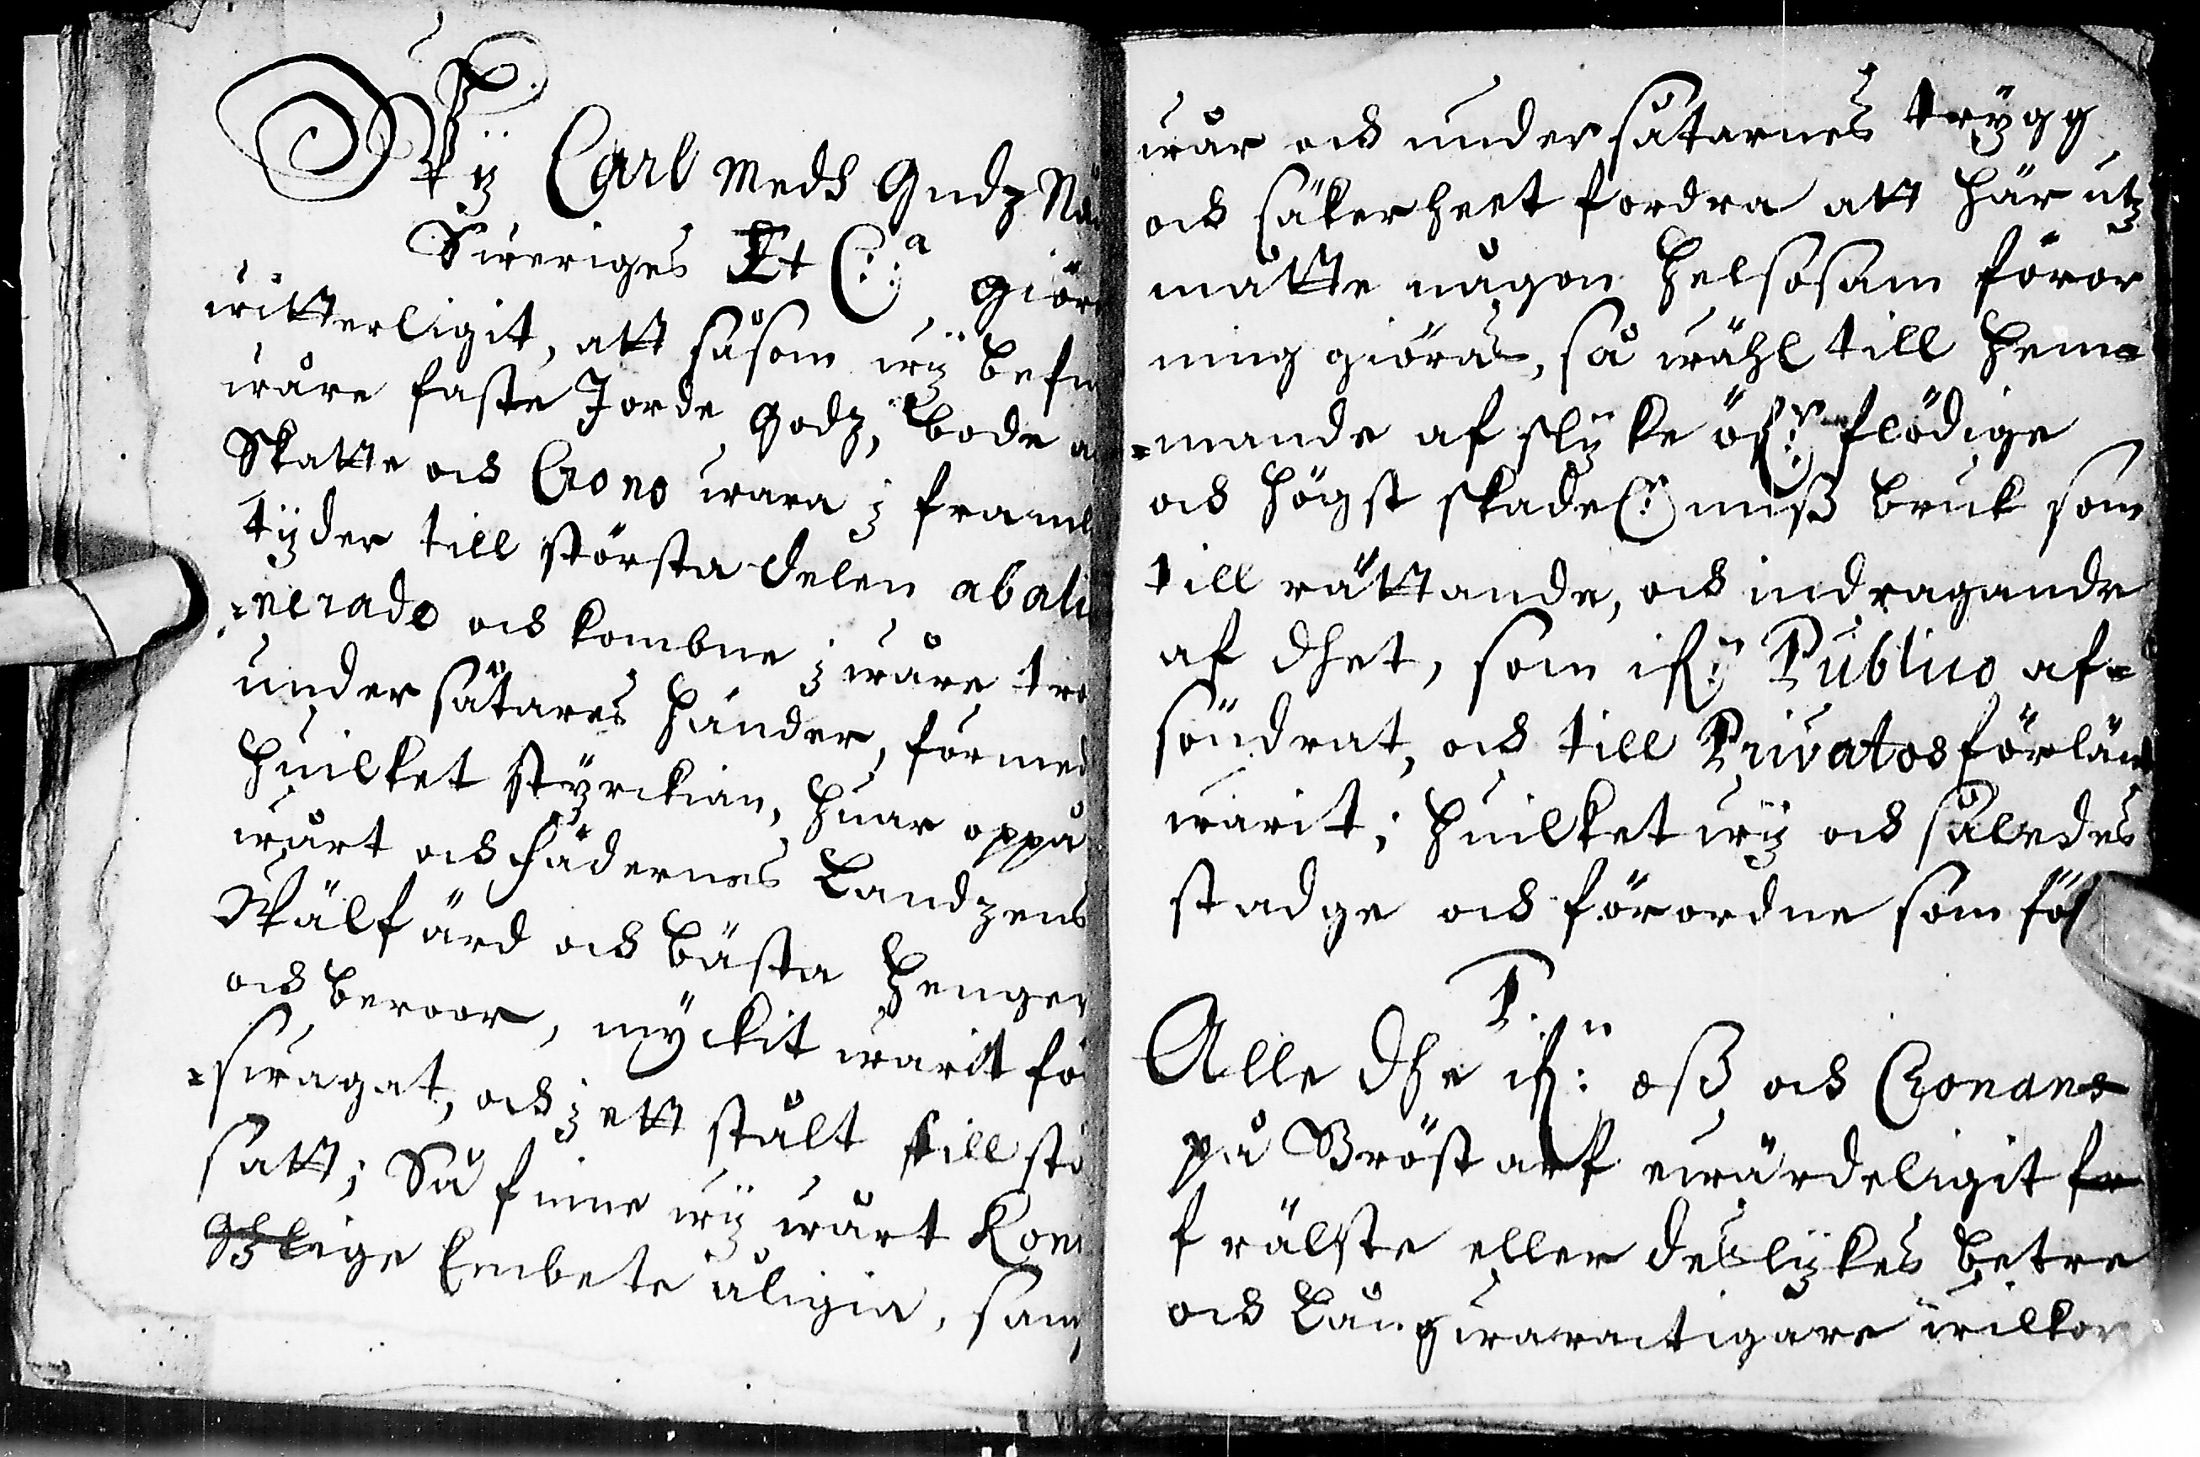 Wÿ Carl Medh Gudz Nå
Sweriges Et C:a giöre
witterligit, att såsom wÿ befin
wåre faste Jorde Godz, både a
Skatte och Crono wara j framl
tÿder till största delen abali
=nerade och kombne j wåre tro
undersåtares händer, förmed
huilket Stÿrckian, huar oppå
wårt och fädernes Landzens
Wälfärd och bästa henger
och beroor, mÿckit warit för
=swagat, och j ett stält
satt; Så finne wÿ wårt Kon
lige Embete åligia, sam
wår och undersåtarnes trÿgg
och säkerheet fordra att här utj
måtte någon helsosam föror
ning giöras, så wähl till hem=
=mande af slÿke öf:r flödige
och högst skadel: missbruk som
till rättande, och indragande
af dhet, som ifr: Publico af=
söndrat, och till Privatos förlänt
warit; huilket wÿ och således
stadge och förordne som föl
1.
Alle dhe ifr: oss och Cronans
på Bröstarf ewärdeligit
frälste eller deslÿkes betre
och Långwaractigare wilkor